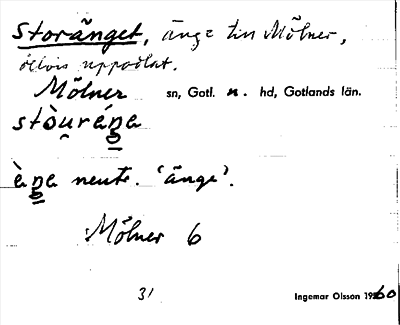 Storänget, änge till Mölner,
delvis uppodlat.
Mölner sn, Gotl. n. hd, Gotlands län.
stòuréŋa
èŋa neutr. 'änge'.
Mölner 6
31
Ingemar Olsson 1960